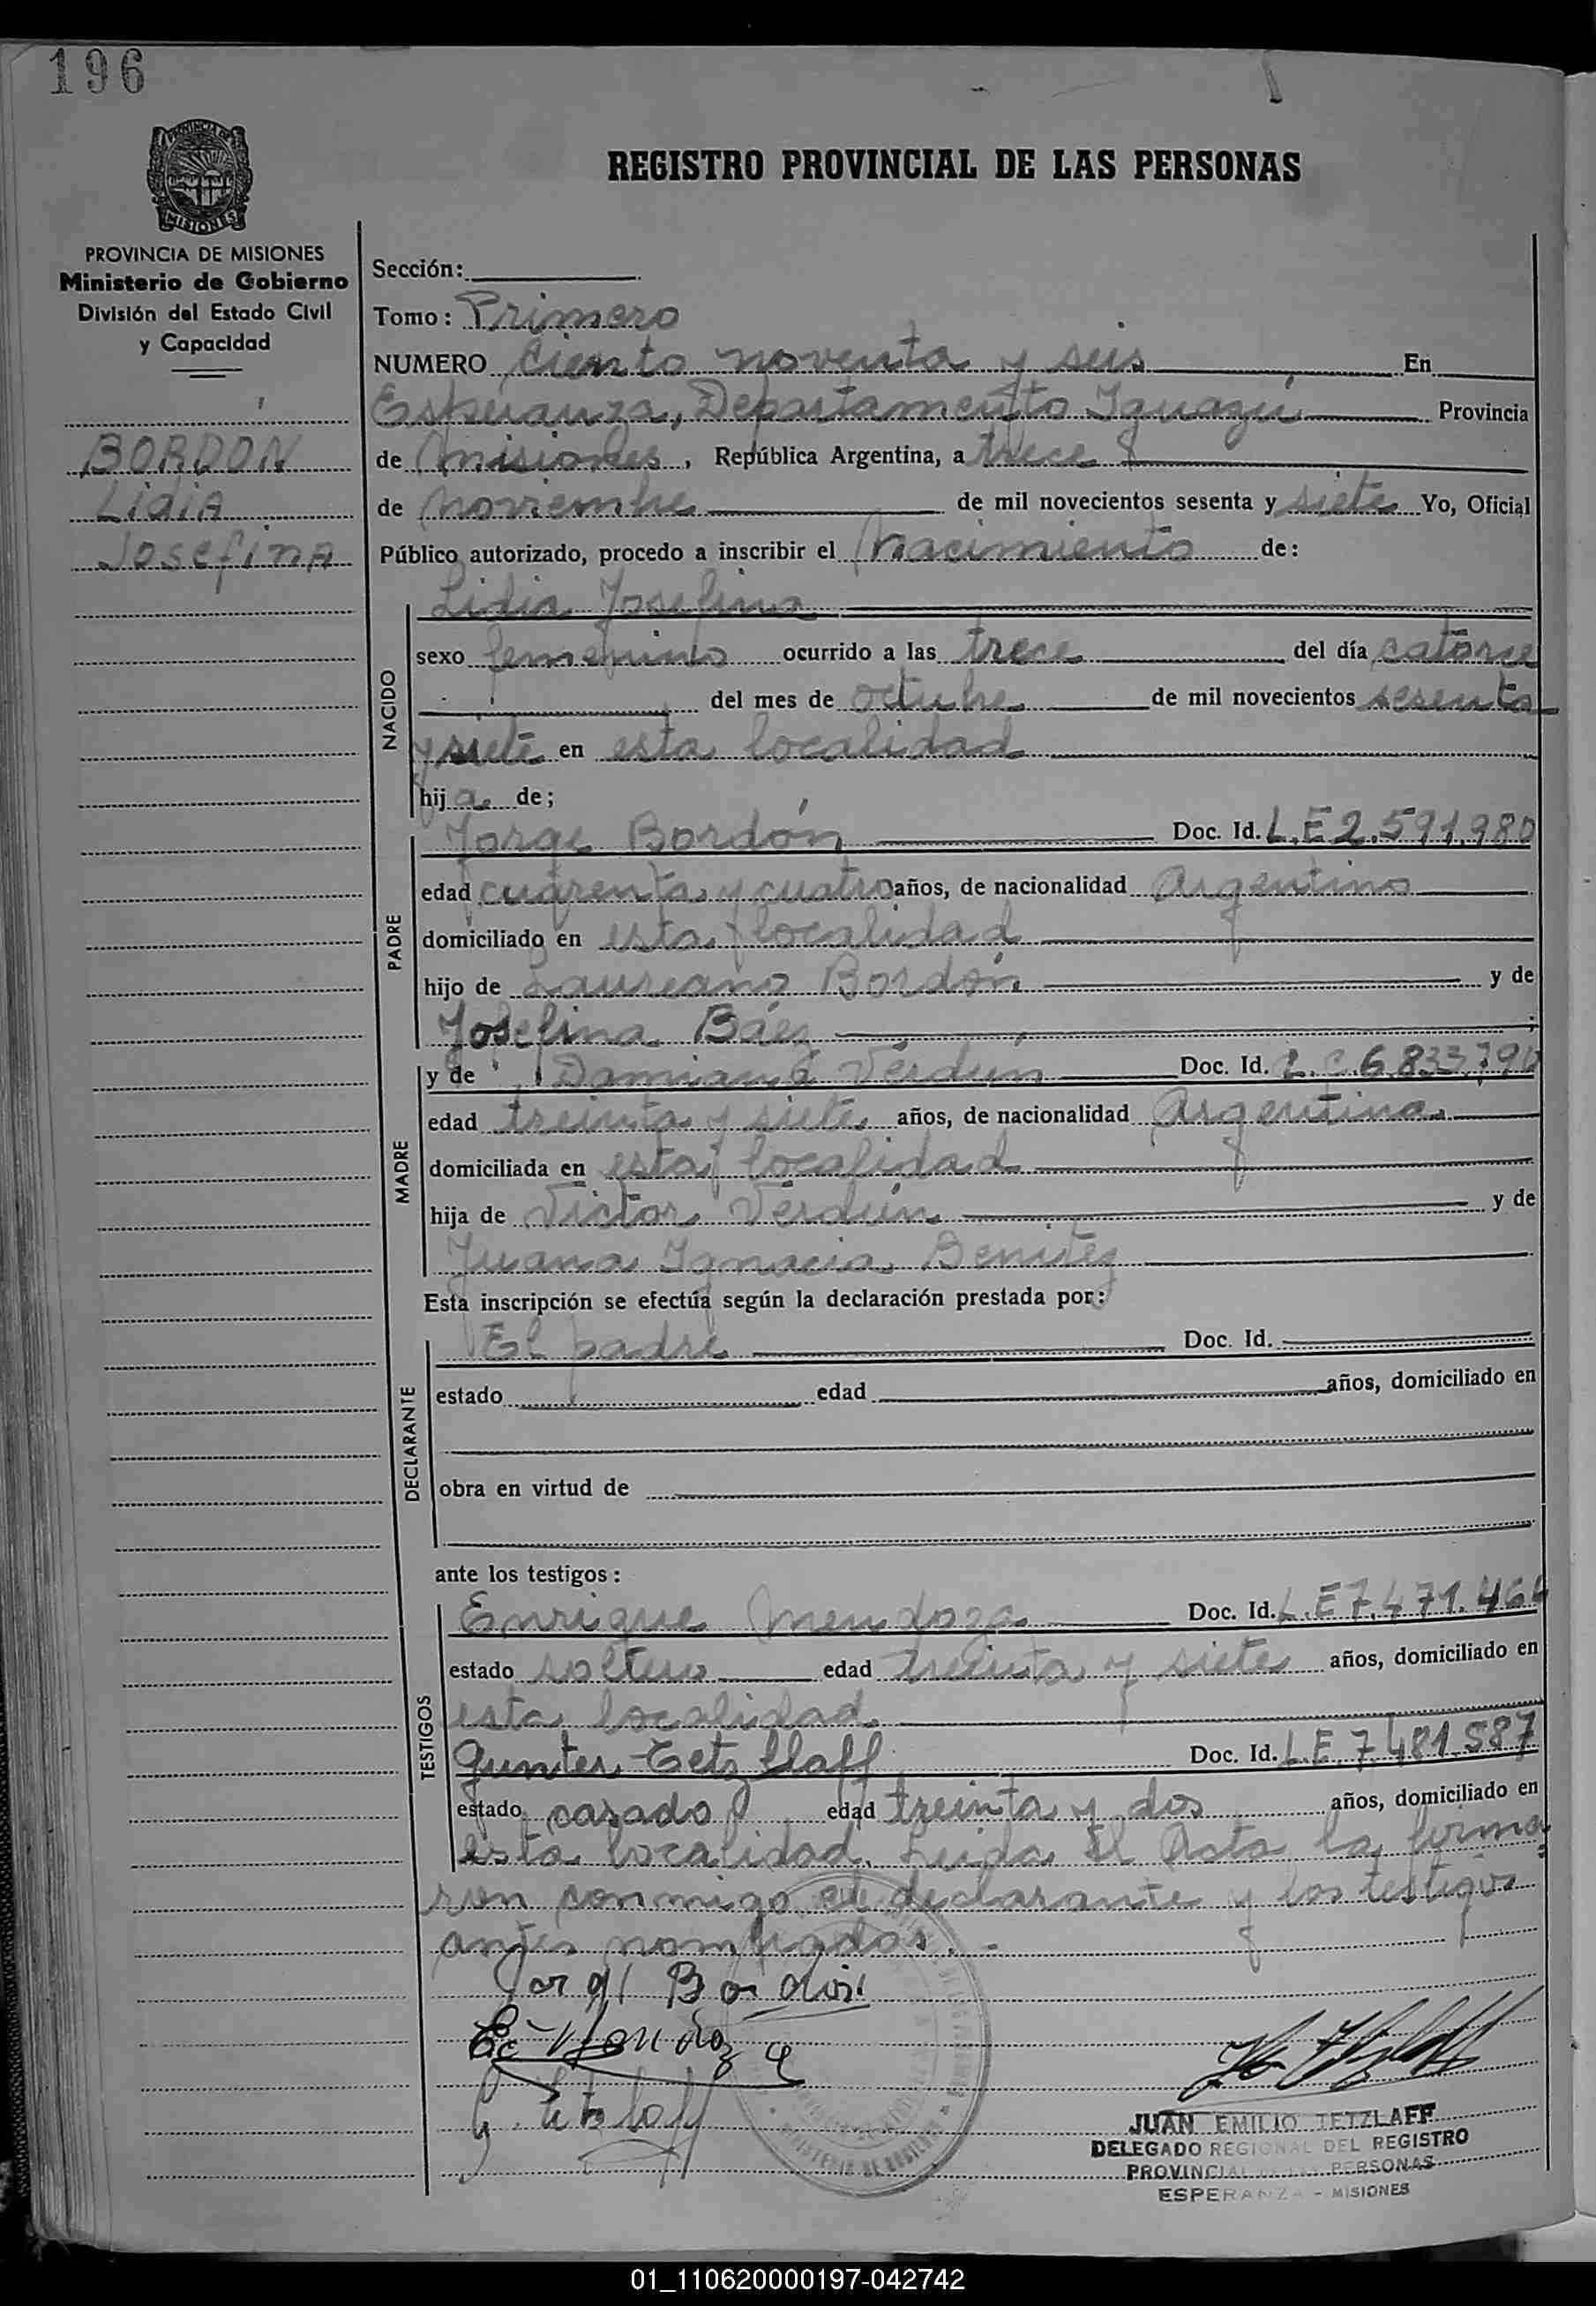 196
PROVINCIA DE
MISIONES
REGISTRO PROVINCIAL DE LAS PERSONAS
PROVINCIA DE MISIONES
Ministerio de Gobierno
División del Estado Civil
y Capacidad
BORDON
Lidia
Josefina
Sección:
Tomo: Primero
NUMERO ciento noventa y seis En
Esperanza, Departamento Iguazú Provincia
de Misiones, República Argentina, a trece
de noviembre de mil novecientos sesenta y siete Yo, Oficial
Público autorizado, procedo a inscribir el nacimiento de:
Lidia Josefina
NACIDO
sexo femenino ocurrido a las trece del día catorce
del mes de octubre de mil novecientos sesenta
y siete en esta localidad
hija de;
PADRE
Jorge Bordón Doc. Id. L.E 2.591.980
edad cuarenta y cuatro años, de nacionalidad Argentino
domiciliado en esta localidad
hijo de Laureano Bordón y de
Josefina Báez ;
MADRE
y de Damiana Verdún Doc. Id. L.C.6.833.790
edad treinta y siete años, de nacionalidad Argentina
domiciliada en esta localidad
hija de Victor Verdún y de
Juana Ignacia Benitez
Esta inscripción se efectúa según la declaración prestada por:
DECLARANTE
El padre Doc. Id.
estado edad años, domiciliado en
obra en virtud de
ante los testigos:
TESTIGOS
Enrique Mendoza Doc. Id. L.E 7.471.464
estado soltero edad treinta y siete años, domiciliado en
esta localidad.
Gunter Tetzlaff Doc. Id. L.E. 7.481.587
estado casado edad treinta y dos años, domiciliado en
esta localidad. Leida el Acta la firma
ron conmigo el declarante y los testigos
antes nombrados.
Jorge Bordón
E. Mendoza
G. Tetzlaff
JUAN EMILIO TETZLAFF
DELEGADO REGIONAL DEL REGISTRO
PROVINCIAL DE LAS PERSONAS
ESPERANZA - MISIONES
01_110620000197-042742